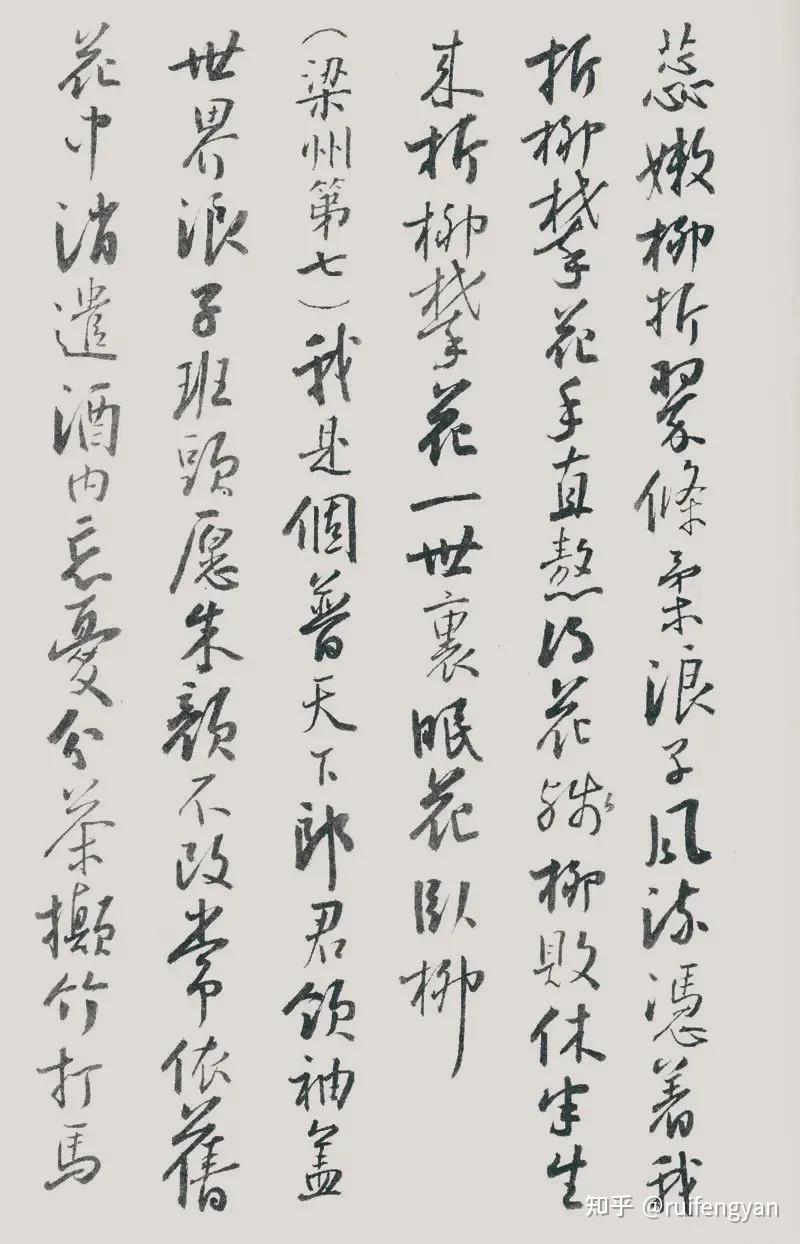 蕊嫩柳折翠條柔浪子風流憑着我
折柳攀花手直熬得花殘柳敗休半生
來折柳攀花一世裏眠花臥柳
（梁州第七）我是個普天下郎君領袖蓋
世界浪子班頭愿朱顏不改常依舊
花中消遣酒內忘憂分茶攧竹打馬
知乎 @ruifengyan